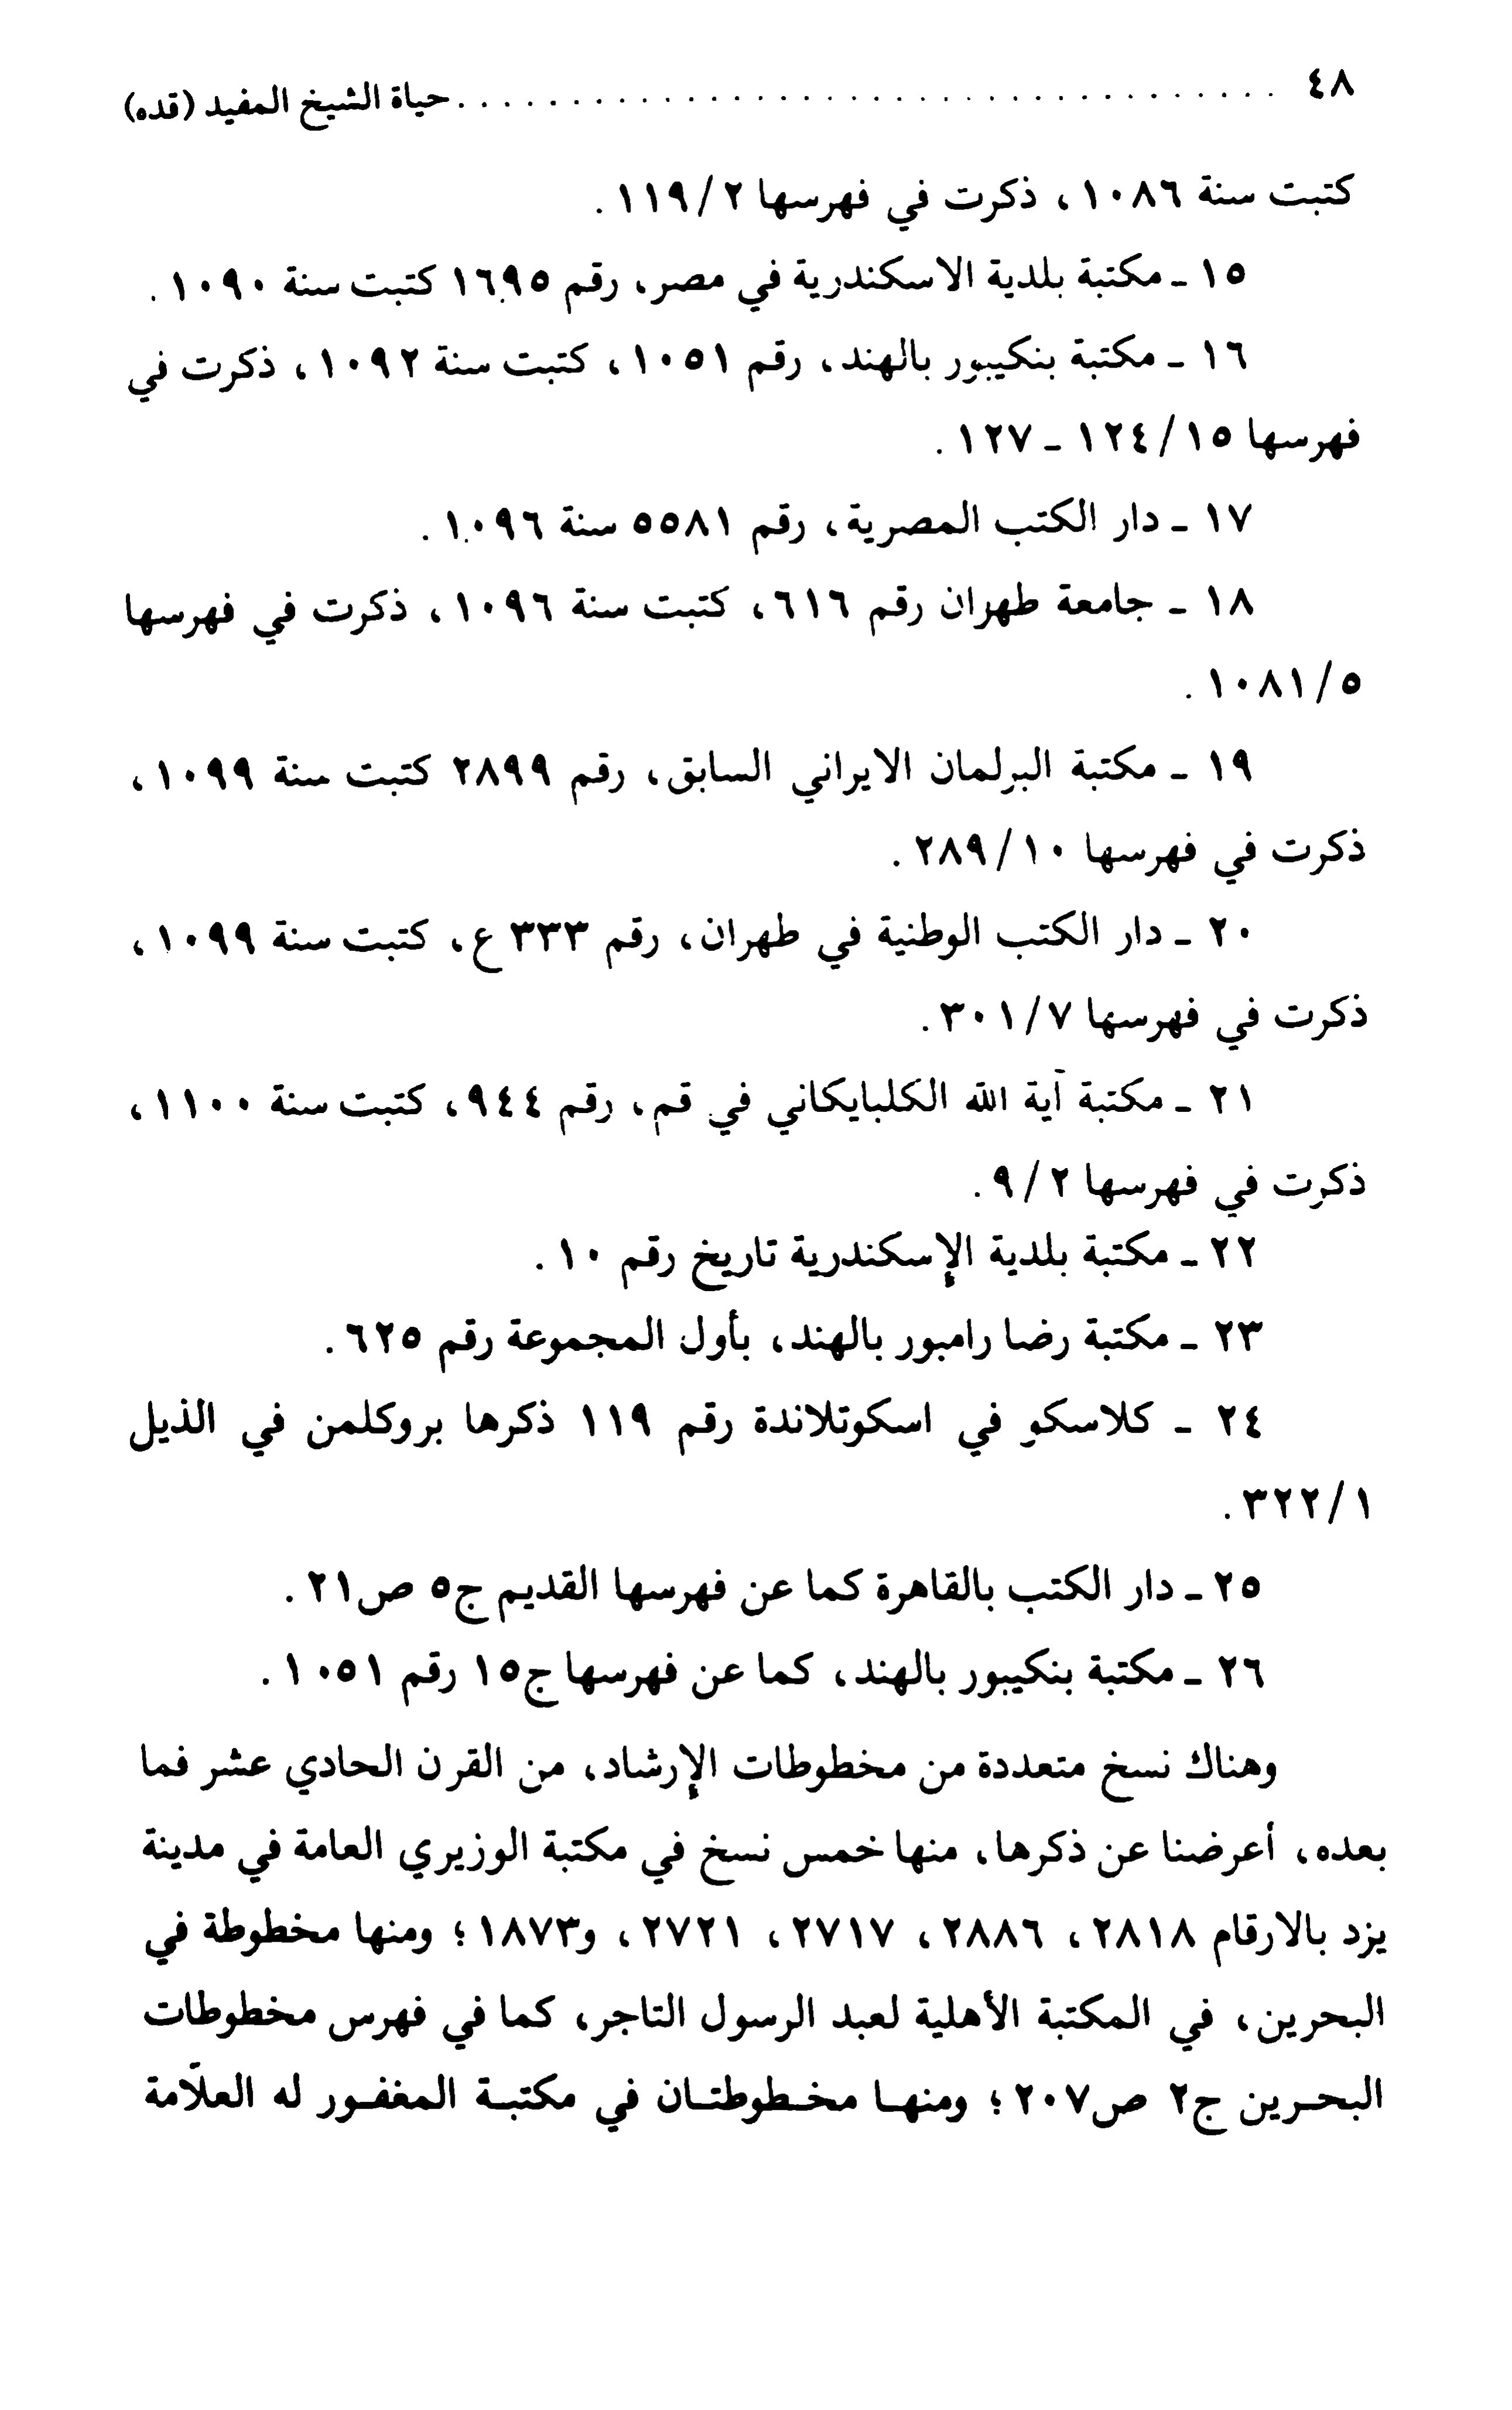 ٤٨ ................................ حياة الشيخ المفيد (قده)
كتبت سنة ١٠٨٦، ذكرت في فهرسها ١١٩/٢.
١٥ ـ مكتبة بلدية الاسكندرية في مصر، رقم ١٦٩٥ كتبت سنة ١٠٩٠.
١٦ ـ مكتبة بنكيبور بالهند، رقم ١٠٥١، كتبت سنة ١٠٩٢، ذكرت في
فهرسها ١٢٤/١٥ ـ ١٢٧.
١٧ ـ دار الكتب المصرية، رقم ٥٥٨١ سنة ١٠٩٦.
١٨ ـ جامعة طهران رقم ٦١٦، كتبت سنة ١٠٩٦، ذكرت في فهرسها
١٠٨١/٥.
١٩ ـ مكتبة البرلمان الايراني السابق، رقم ٢٨٩٩ كتبت سنة ١٠٩٩،
ذكرت في فهرسها ٢٨٩/١٠.
٢٠ ـ دار الكتب الوطنية في طهران، رقم ٣٣٣ ع، كتبت سنة ١٠٩٩،
ذكرت في فهرسها ٣٠١/٧.
٢١ ـ مكتبة آية الله الكلبايكاني في قم، رقم ٩٤٤، كتبت سنة ١١٠٠،
ذكرت في فهرسها ٩/٢.
٢٢ ـ مكتبة بلدية الإسكندرية تاريخ رقم ١٠.
٢٣ ـ مكتبة رضا رامبور بالهند، بأول المجموعة رقم ٦٢٥.
٢٤ ـ كلاسكو في اسكوتلاندة رقم ١١٩ ذكرها بروكلمن في الذيل
٣٢٢/١.
٢٥ ـ دار الكتب بالقاهرة كما عن فهرسها القديم ج٥ ص٢١.
٢٦ ـ مكتبة بنكيبور بالهند، كما عن فهرسها ج١٥ رقم ١٠٥١.
وهناك نسخ متعددة من مخطوطات الإرشاد، من القرن الحادي عشر فما
بعده، أعرضنا عن ذكرها، منها خمس نسخ في مكتبة الوزيري العامة في مدينة
يزد بالارقام ٢٨١٨، ٢٨٨٦، ٢٧١٧، ٢٧٢١، و١٨٧٣؛ ومنها مخطوطة في
البحرين، في المكتبة الأهلية لعبد الرسول التاجر، كما في فهرس مخطوطات
البحـرين ج٢ ص٢٠٧؛ ومنهـا مخـطوطتـان في مكتبـة المغفـور له العلّامة